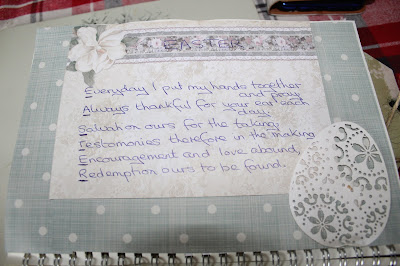 EASTER
Everyday I put my hands together
and pray.
Always thankful for your ear each
day.
Salvation ours for the taking,
Testomonies therefore in the making
Encouragement and love abound,
Redemption ours to be found.